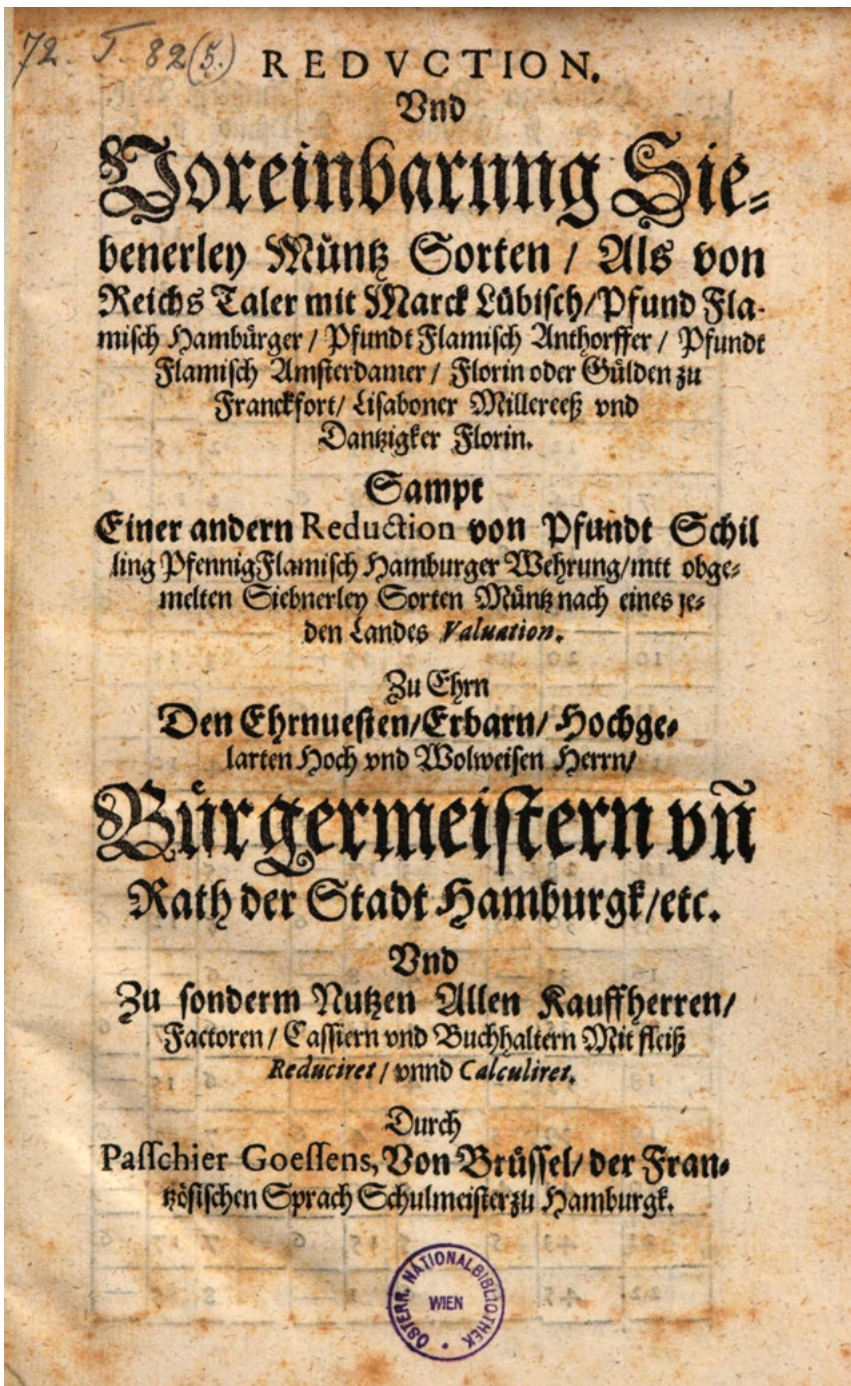 72. J. 82(5.)
REDVCTION.
Vnd
Voreinbarung Sie-
benerley Müntz Sorten / Als von
Reichs Taler mit Marck Lübisch/Pfund Fla-
misch Hambürger / Pfundt Flamisch Anthorffer / Pfundt
Flamisch Amsterdamer / Florin oder Gülden zu
Franckfort/ Lisaboner Millereeß vnd
Dantzigker Florin.
Sampt
Einer andern Reduction von Pfundt Schil
ling Pfennig Flamisch Hamburger Wehrung/mit obge-
melten Siebnerley Sorten Müntz nach eines je-
den Landes Valuation.
Zu Ehrn
Den Ehrnuesten/Erbarn/ Hochge-
larten Hoch vnd Wolweisen Herrn/
Bürgermeistern vñ
Rath der Stadt Hamburgk/etc.
Vnd
Zu sonderm Nutzen Allen Kauffherren/
Factoren / Cassiern vnd Buchhaltern Mit fleiß
Reduciret / vnnd Calculiret.
Durch
Passchier Goessens, Von Brüssel/ der Fran-
tzösischen Sprach Schulmeister zu Hamburgk.
ÖSTERR. NATIONALBIBLIOTHEK
WIEN